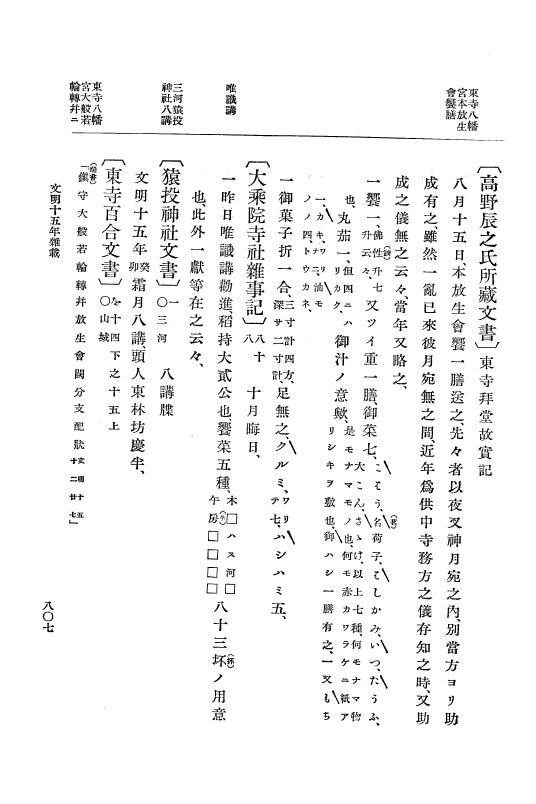 東寺八幡
宮本放生
會饗膳
〔高野辰之氏所藏文書〕東寺拜堂故實記
八月十五日、本放生會饗一膳送之、先々者以夜叉神月宛之內、別當方ヨリ助
成有之、雖然一亂已來彼月宛無之間、近年爲供中寺務方之儀存知之時、又助
成之儀無之云々、當年又略之、
一饗一、佛性升七升云々、又ツイ重一膳、御菜七、こそう、名荷子、はしかみ、いつ、たうふ、大こん、さゝけ、以上七種、何モナマ物
也、丸茄一、但四ニハワリカク、御汁ノ意歟、是モナマモノ也、何モ赤カワラケニ紙ア
リシキヲ敷也、御ハシ一膳有之、一又もち
一、カキ、ワリ油モノ、一、テニノ四、トウカネ、
一御菓子折一合、三寸計四方、深サ二寸計、足無之、クルミ、ワリテ七、ハシハミ五、
唯識講
〔大乘院寺社雜事記〕八十八 十月晦日、
一昨日唯識講勸進、稻持大貳公也、饗菜五種、木□ハス河□午房□□□□八十三坏ノ用意
也、此外一獻等在之云々、
三河猿投
神社八講
〔猿投神社文書〕一〇三河 八講牒
文明十五年癸卯霜月八講、頭人東林坊慶半、
東寺八幡
宮大般若
輪轉幷ニ
〔東寺百合文書〕を十四〇山城下之十五上
「鎭守大般若輪轉幷放生會闕分支配狀文明十五十二廿七」
文明十五年雜載
八〇七